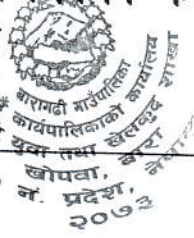 बारागढी गाउँपालिका
गाउँ कार्यपालिकाको कार्यालय
युवा तथा खेलकुद शाखा
खोपवा, बारा
प्रदेश,
२०७३